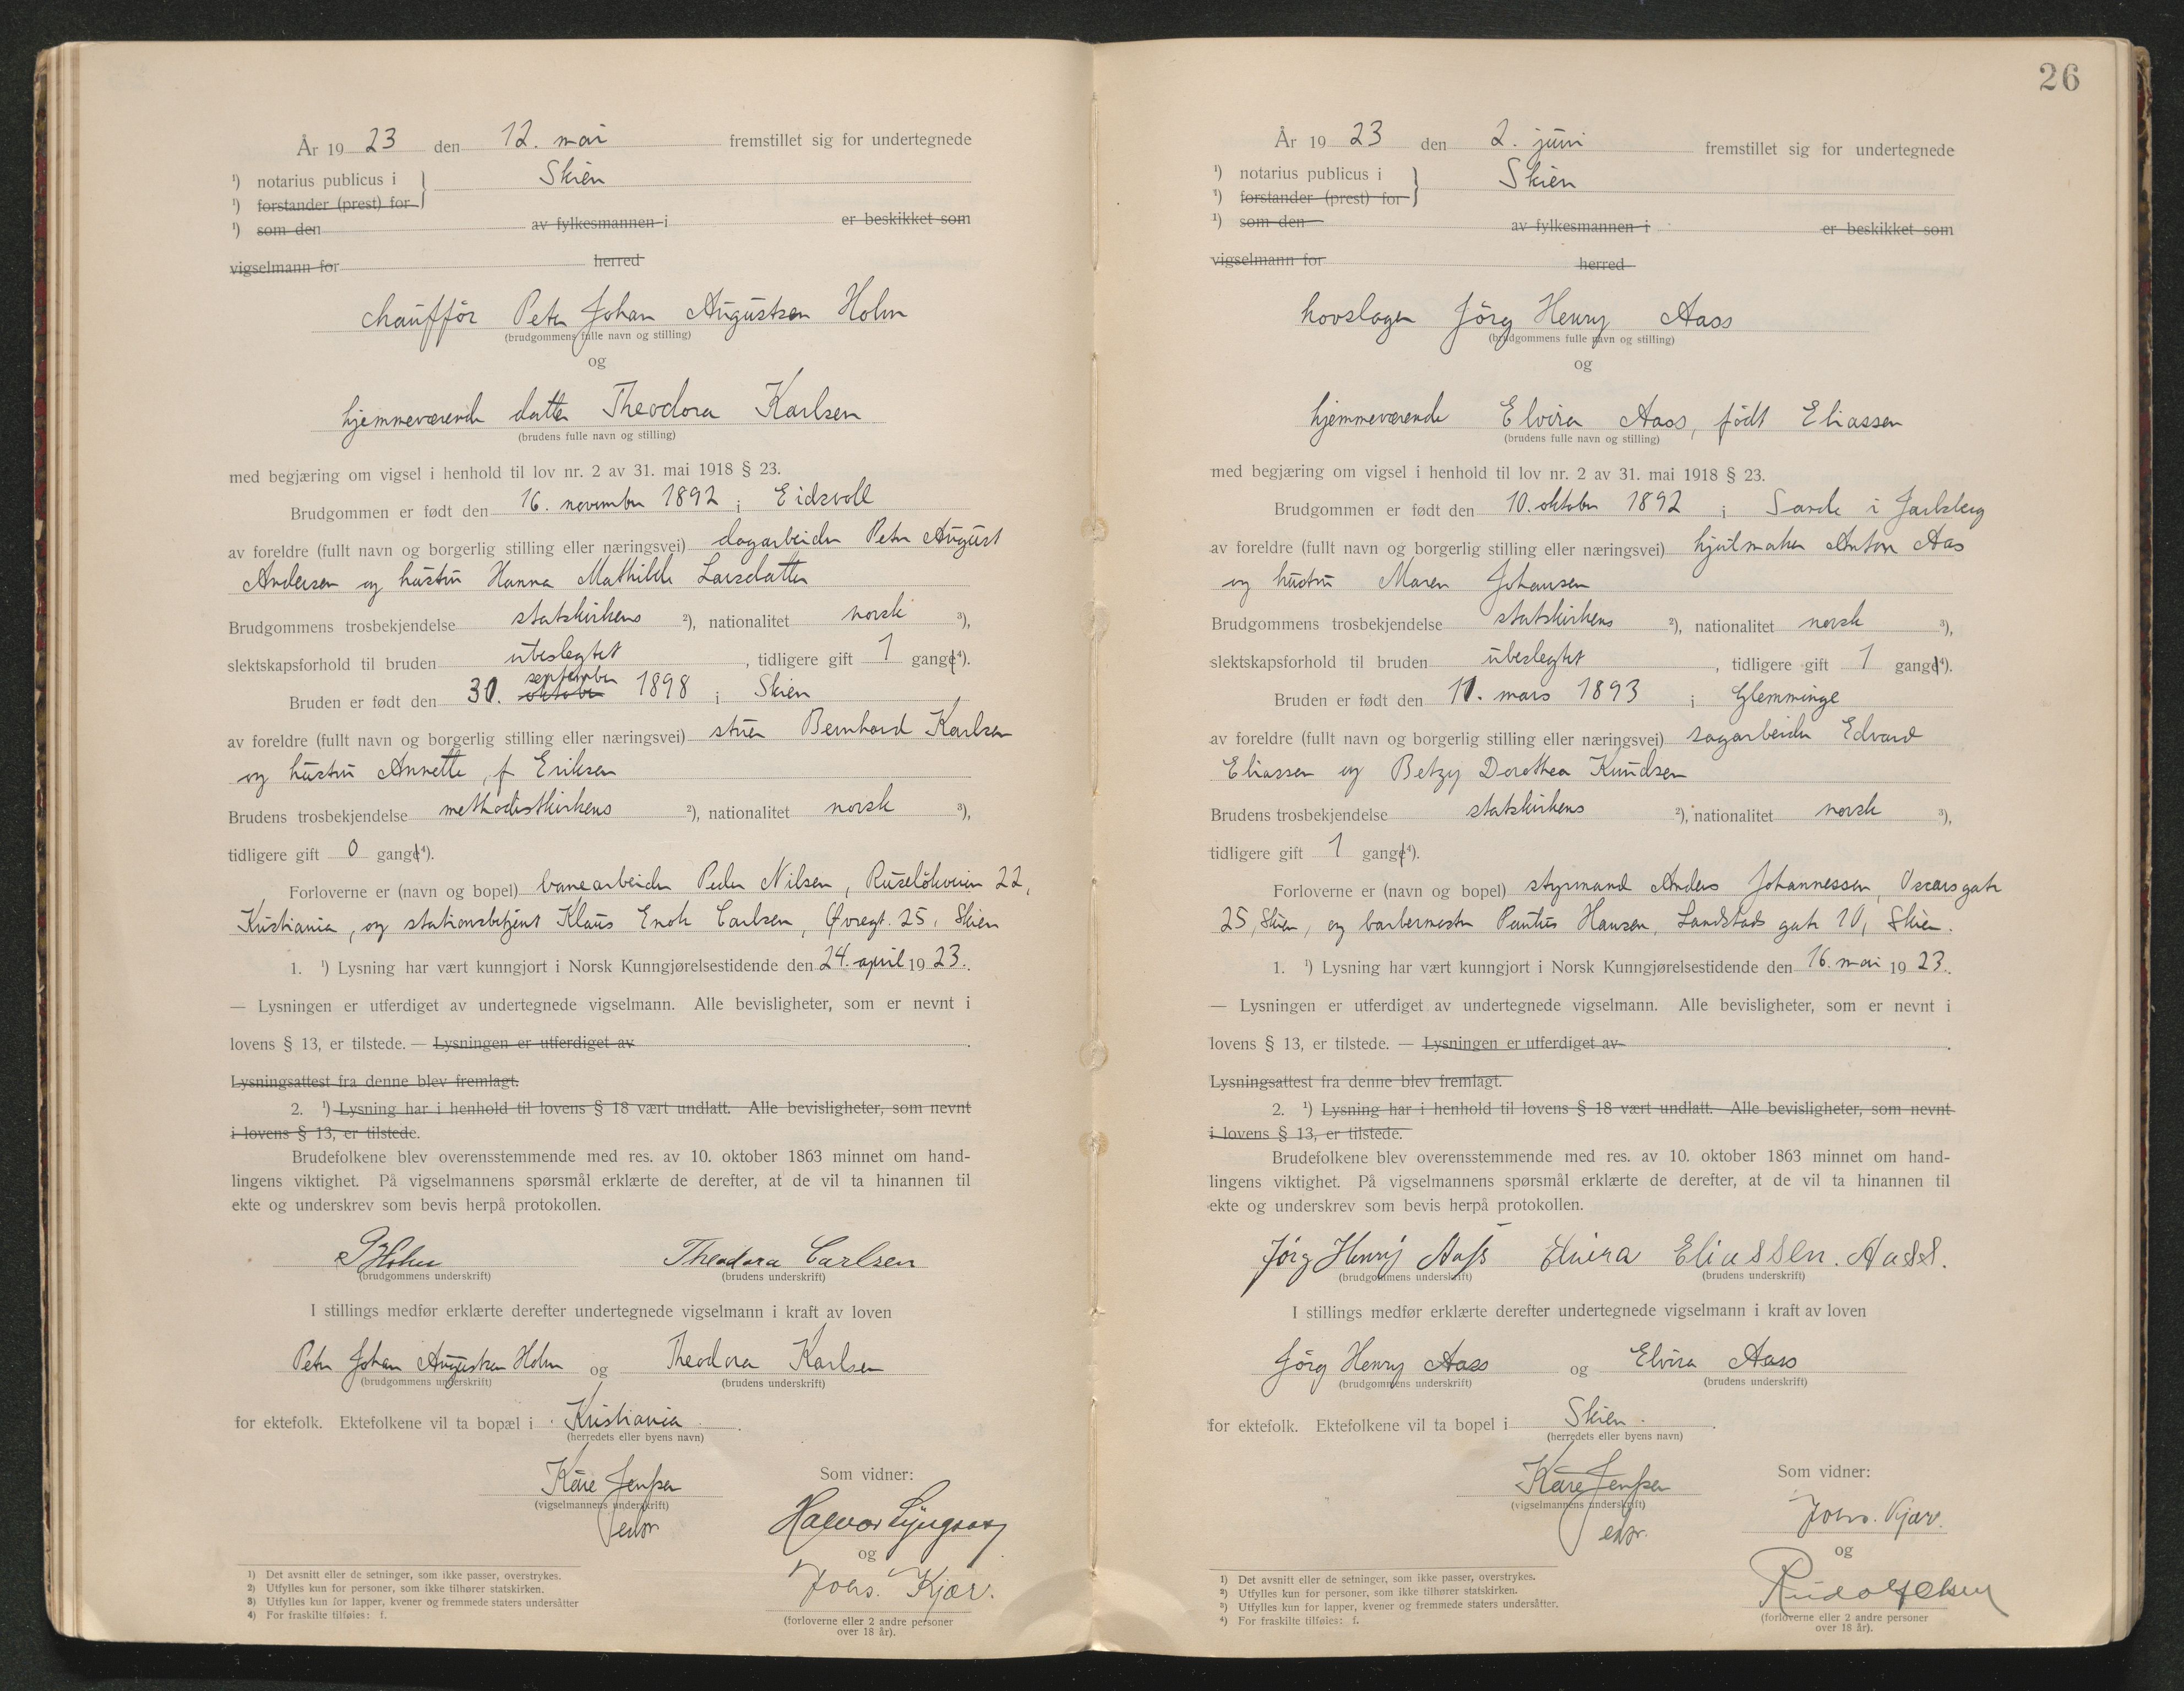 År 19 23 den 12. mai fremstillet sig for undertegnede
¹) notarius publicus i } Skien
¹) forstander (prest) for
¹) som den av fylkesmannen i er beskikket som
vigselmann for herred
chauffør Peter Johan Augustsen Holm
(brudgommens fulle navn og stilling)
og
hjemmeværende datter Theodora Karlsen
(brudens fulle navn og stilling)
med begjæring om vigsel i henhold til lov nr. 2 av 31. mai 1918 § 23.
Brudgommen er født den 16. november 1892 i Eidsvoll
av foreldre (fullt navn og borgerlig stilling eller næringsvei) dagarbeider Peter August
Andersen og hustru Hanna Mathilde Larsdatter
Brudgommens trosbekjendelse statskirkens ²), nationalitet norsk ³),
slektskapsforhold til bruden ubeslegtet , tidligere gift 1 gange⁴).
september
Bruden er født den 30. oktober 1898 i Skien
av foreldre (fullt navn og borgerlig stilling eller næringsvei) stuer Bernhard Karlsen
og hustru Annette, f. Eriksen
Brudens trosbekjendelse methodistkirkens ²), nationalitet norsk ³),
tidligere gift 0 gange⁴).
Forloverne er (navn og bopel) banearbeider Peder Nilsen, Ruseløkveien 22,
Kristiania, og stationsbetjent Klaus Enok Carlsen, Øvregt. 25, Skien
1. ¹) Lysning har vært kunngjort i Norsk Kunngjørelsestidende den 24. april 19 23.
— Lysningen er utferdiget av undertegnede vigselmann. Alle bevisligheter, som er nevnt i
lovens § 13, er tilstede. — Lysningen er utferdiget av .
Lysningsattest fra denne blev fremlagt.
2. ¹) Lysning har i henhold til lovens § 18 vært undlatt. Alle bevisligheter, som nevnt
i lovens § 13, er tilstede.
Brudefolkene blev overensstemmende med res. av 10. oktober 1863 minnet om hand-
lingens viktighet. På vigselmannens spørsmål erklærte de derefter, at de vil ta hinannen til
ekte og underskrev som bevis herpå protokollen.
P Holm Theodora Carlsen
(brudgommens underskrift) (brudens underskrift)
I stillings medfør erklærte derefter undertegnede vigselmann i kraft av loven
Peter Johan Augustsen Holm og Theodora Karlsen
(brudgommens underskrift) (brudens underskrift)
for ektefolk. Ektefolkene vil ta bopæl i Kristiania.
(herredets eller byens navn)
Kåre Jenssen Som vidner:
(vigselmannens underskrift)
edsv.
Halvor
og
Johs. Kjær.
(forloverne eller 2 andre personer
over 18 år).
1) Det avsnitt eller de setninger, som ikke passer, overstrykes.
2) Utfylles kun for personer, som ikke tilhører statskirken.
3) Utfylles kun for lapper, kvener og fremmede staters undersåtter
4) For fraskilte tilføies: f.
26
År 19 23 den 2. juni fremstillet sig for undertegnede
¹) notarius publicus i } Skien
¹) forstander (prest) for
¹) som den av fylkesmannen i er beskikket som
vigselmann for herred
hovslager Jörg Henry Aass
(brudgommens fulle navn og stilling)
og
hjemmeværende Elvira Aass, født Eliassen
(brudens fulle navn og stilling)
med begjæring om vigsel i henhold til lov nr. 2 av 31. mai 1918 § 23.
Brudgommen er født den 10. oktober 1892 i Sande i Jarlsberg
av foreldre (fullt navn og borgerlig stilling eller næringsvei) hjulmaker Anton Aas
og hustru Maren Johansen
Brudgommens trosbekjendelse statskirkens ²), nationalitet norsk ³),
slektskapsforhold til bruden ubeslegtet , tidligere gift 1 gange⁴).
Bruden er født den 11. mars 1893 i Glemminge
av foreldre (fullt navn og borgerlig stilling eller næringsvei) sagarbeider Edvard
Eliassen og Betzy Dorothea Knudsen
Brudens trosbekjendelse statskirkens ²), nationalitet norsk ³),
tidligere gift 1 gange⁴).
Forloverne er (navn og bopel) styrmand Anders Johannessen, Oscarsgate
25, Skien, og barbermester Hansen, Landstads gate 10, Skien.
1. ¹) Lysning har vært kunngjort i Norsk Kunngjørelsestidende den 16. mai 19 23.
— Lysningen er utferdiget av undertegnede vigselmann. Alle bevisligheter, som er nevnt i
lovens § 13, er tilstede. — Lysningen er utferdiget av .
Lysningsattest fra denne blev fremlagt.
2. ¹) Lysning har i henhold til lovens § 18 vært undlatt. Alle bevisligheter, som nevnt
i lovens § 13, er tilstede.
Brudefolkene blev overensstemmende med res. av 10. oktober 1863 minnet om hand-
lingens viktighet. På vigselmannens spørsmål erklærte de derefter, at de vil ta hinannen til
ekte og underskrev som bevis herpå protokollen.
Jörg Henry Aass Elvira Eliassen. Aass.
(brudgommens underskrift) (brudens underskrift)
I stillings medfør erklærte derefter undertegnede vigselmann i kraft av loven
Jörg Henry Aass og Elvira Aass
(brudgommens underskrift) (brudens underskrift)
for ektefolk. Ektefolkene vil ta bopel i Skien.
(herredets eller byens navn)
Kåre Jenssen Som vidner:
(vigselmannens underskrift)
edsv.
Johs. Kjær.
og
(forloverne eller 2 andre personer
over 18 år).
1) Det avsnitt eller de setninger, som ikke passer, overstrykes.
2) Utfylles kun for personer, som ikke tilhører statskirken.
3) Utfylles kun for lapper, kvener og fremmede staters undersåtter.
4) For fraskilte tilføies: f.